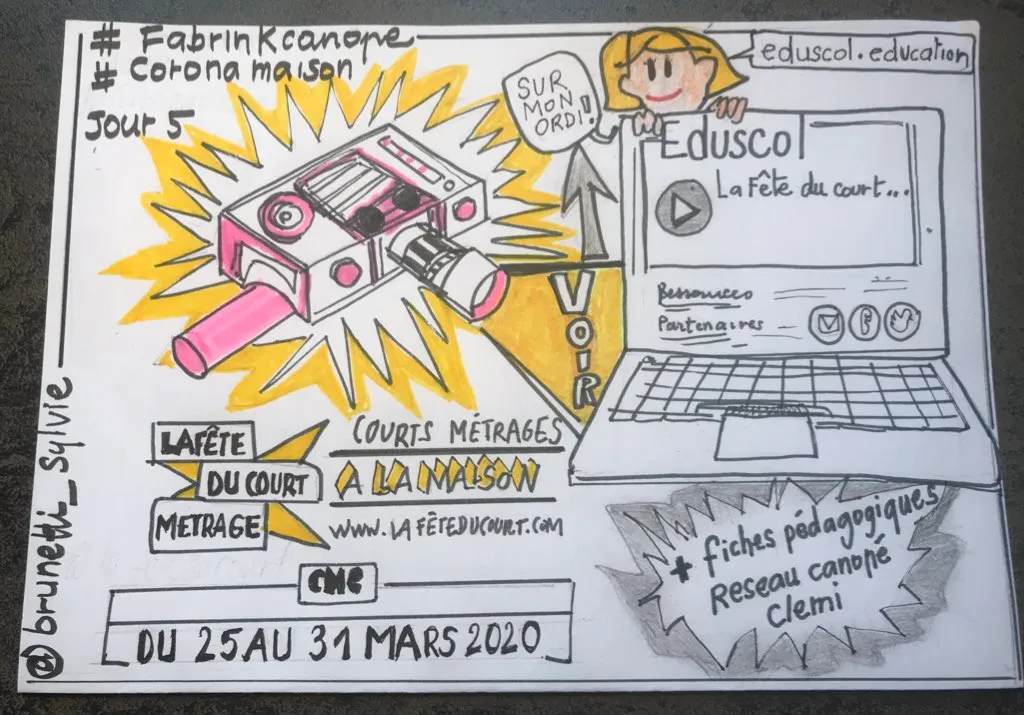 # FabrinKcanope
# Corona maison
Jour 5
SUR
MON
ORDI!
eduscol.education
Eduscol
La Fête du court...
Ressources
Partenaires
VOIR
LA FÊTE
DU COURT
METRAGE
COURTS MÉTRAGES
A LA MAISON
WWW.LAFÊTEDUCOURT.COM
CNC
DU 25 AU 31 MARS 2020
+ fiches pédagogiques
Reseau canopé
Clemi
@brunetti_sylvie